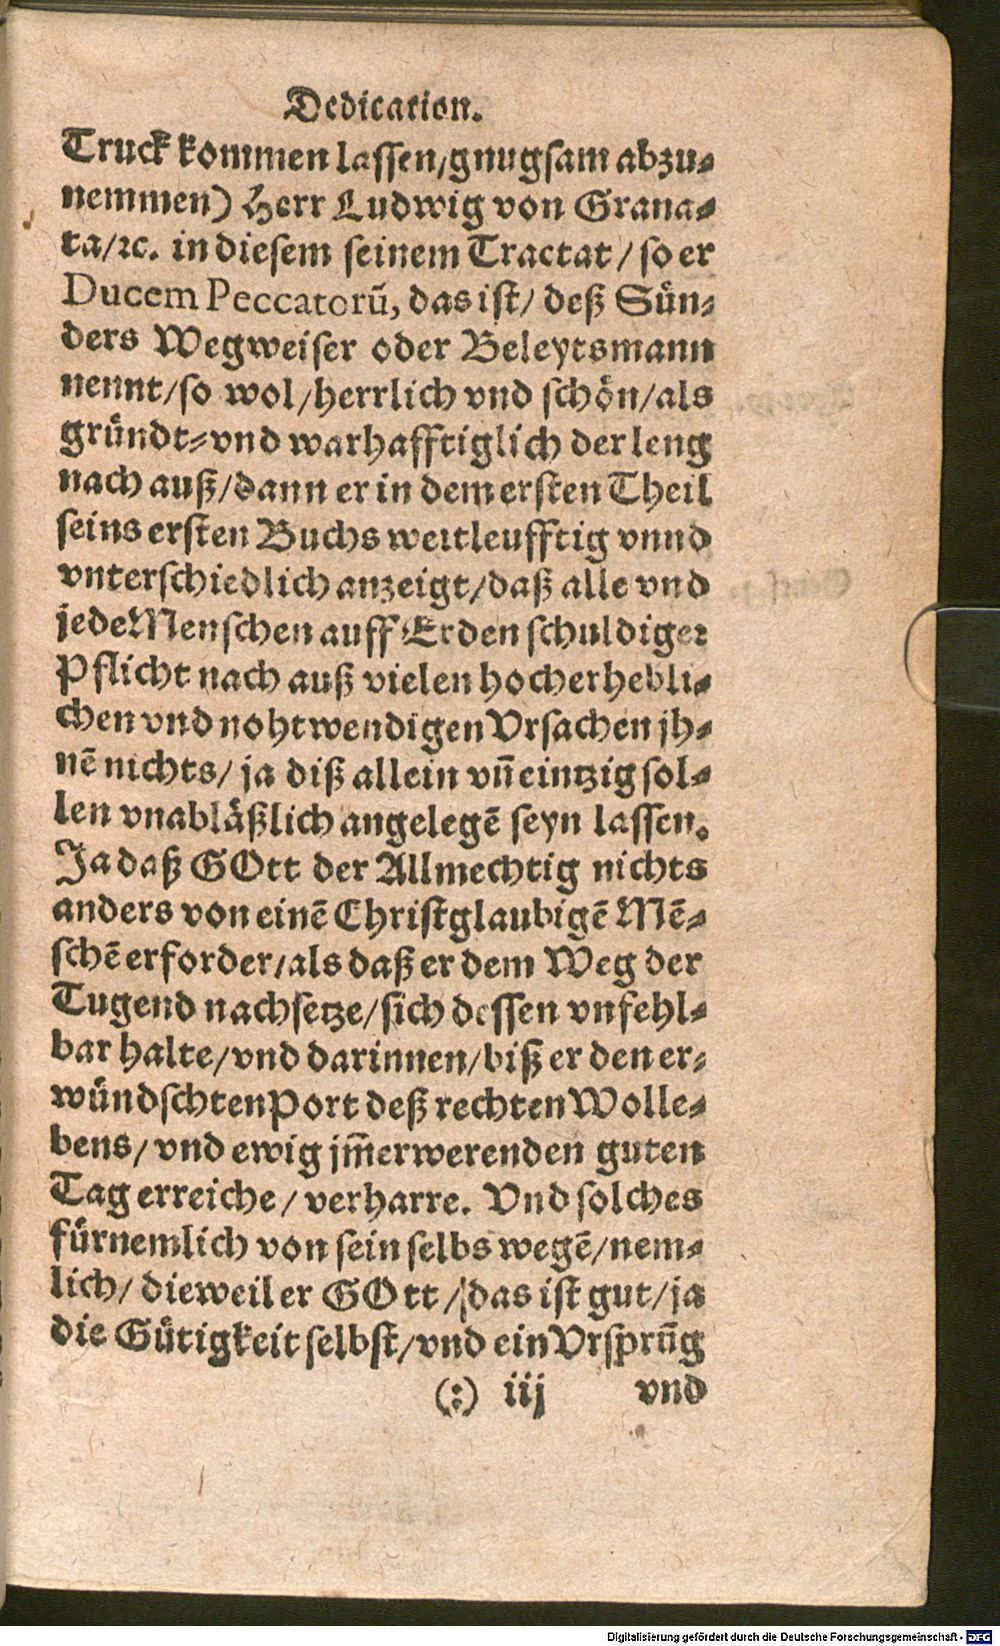 Dedication.
Truck kommen lassen/gnugsam abzu-
nemmen) Herr Ludwig von Grana-
ta/ꝛc. in diesem seinem Tractat / so er
Ducem Peccatorū, das ist/ deß Sün-
ders Wegweiser oder Beleytsmann
nennt/so wol/herrlich vnd schön/als
gründt-vnd warhafftiglich der leng
nach auß/dann er in dem ersten Theil
seins ersten Buchs weitleufftig vnnd
vnterschiedlich anzeigt/daß alle vnd
jede Menschen auff Erden schuldiger
Pflicht nach auß vielen hocherhebli-
chen vnd nohtwendigen Vrsachen jh-
nē nichts/ ja diß allein vn̄ eintzig sol-
len vnabläßlich angelegē seyn lassen.
Ja daß GOtt der Allmechtig nichts
anders von einē Christglaubigē Mē-
schē erforder/als daß er dem Weg der
Tugend nachsetze/sich dessen vnfehl-
bar halte/vnd darinnen/biß er den er-
wündschten Port deß rechten Wolle-
bens/vnd ewig jm̄erwerenden guten
Tag erreiche/ verharre. Vnd solches
fürnemlich von sein selbs wegē/nem-
lich/ dieweil er GOtt /das ist gut/ja
die Gütigkeit selbst/vnd ein Vrsprūg
(:) iij vnd
Digitalisierung gefördert durch die Deutsche Forschungsgemeinschaft - DFG